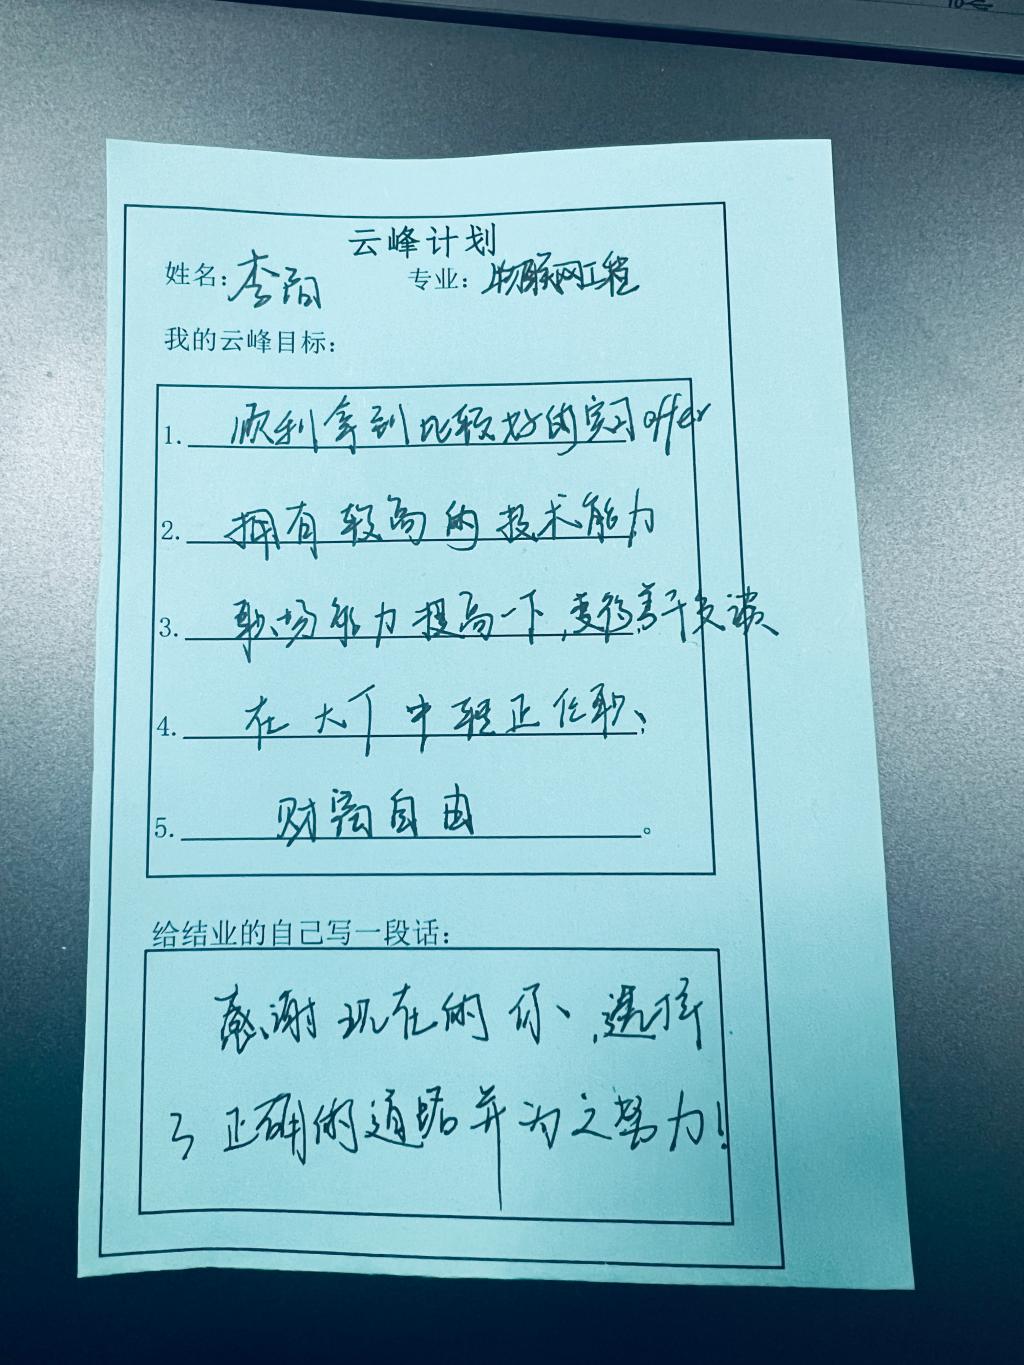 云峰计划
姓名：李 专业：物联网工程
我的云峰目标：
1. 顺利拿到比较好的实习offer
2. 拥有较高的技术能力
3. 职场能力提高一下，变得善于交谈
4. 在大厂中轻正任职、
5. 财富自由。
给结业的自己写一段话：
感谢现在的你、选择
了正确的道路并为之努力！